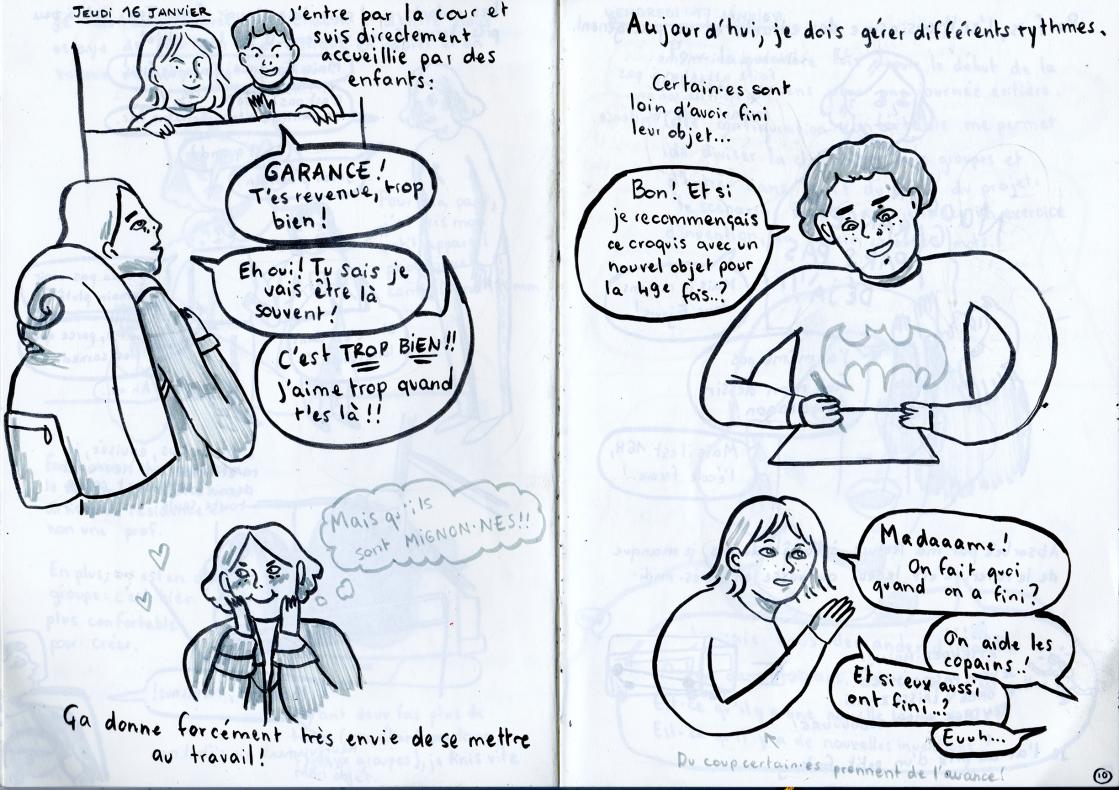 JEUDI 16 JANVIER
J'entre par la cour et
suis directement
accueillie par des
enfants:
GARANCE!
T'es revenue, trop
bien!
Eh oui! Tu sais je
vais être là
souvent!
C'est TROP BIEN!!
J'aime trop quand
t'es là!!
Mais qu'ils
sont MiGNON·NES!!
Ça donne forcément très envie de se mettre
au travail!
Aujourd'hui, je dois gérer différents rythmes.
Certain·es sont
loin d'avoir fini
leur objet...
Bon! Et si
je recommençais
ce croquis avec un
nouvel objet pour
la 49e fois..?
Madaaame!
On fait quoi
quand on a fini?
On aide les
copains.!
Et si eux aussi
ont fini..?
Euuh...
Du coup certain·es prennent de l'avance!
10